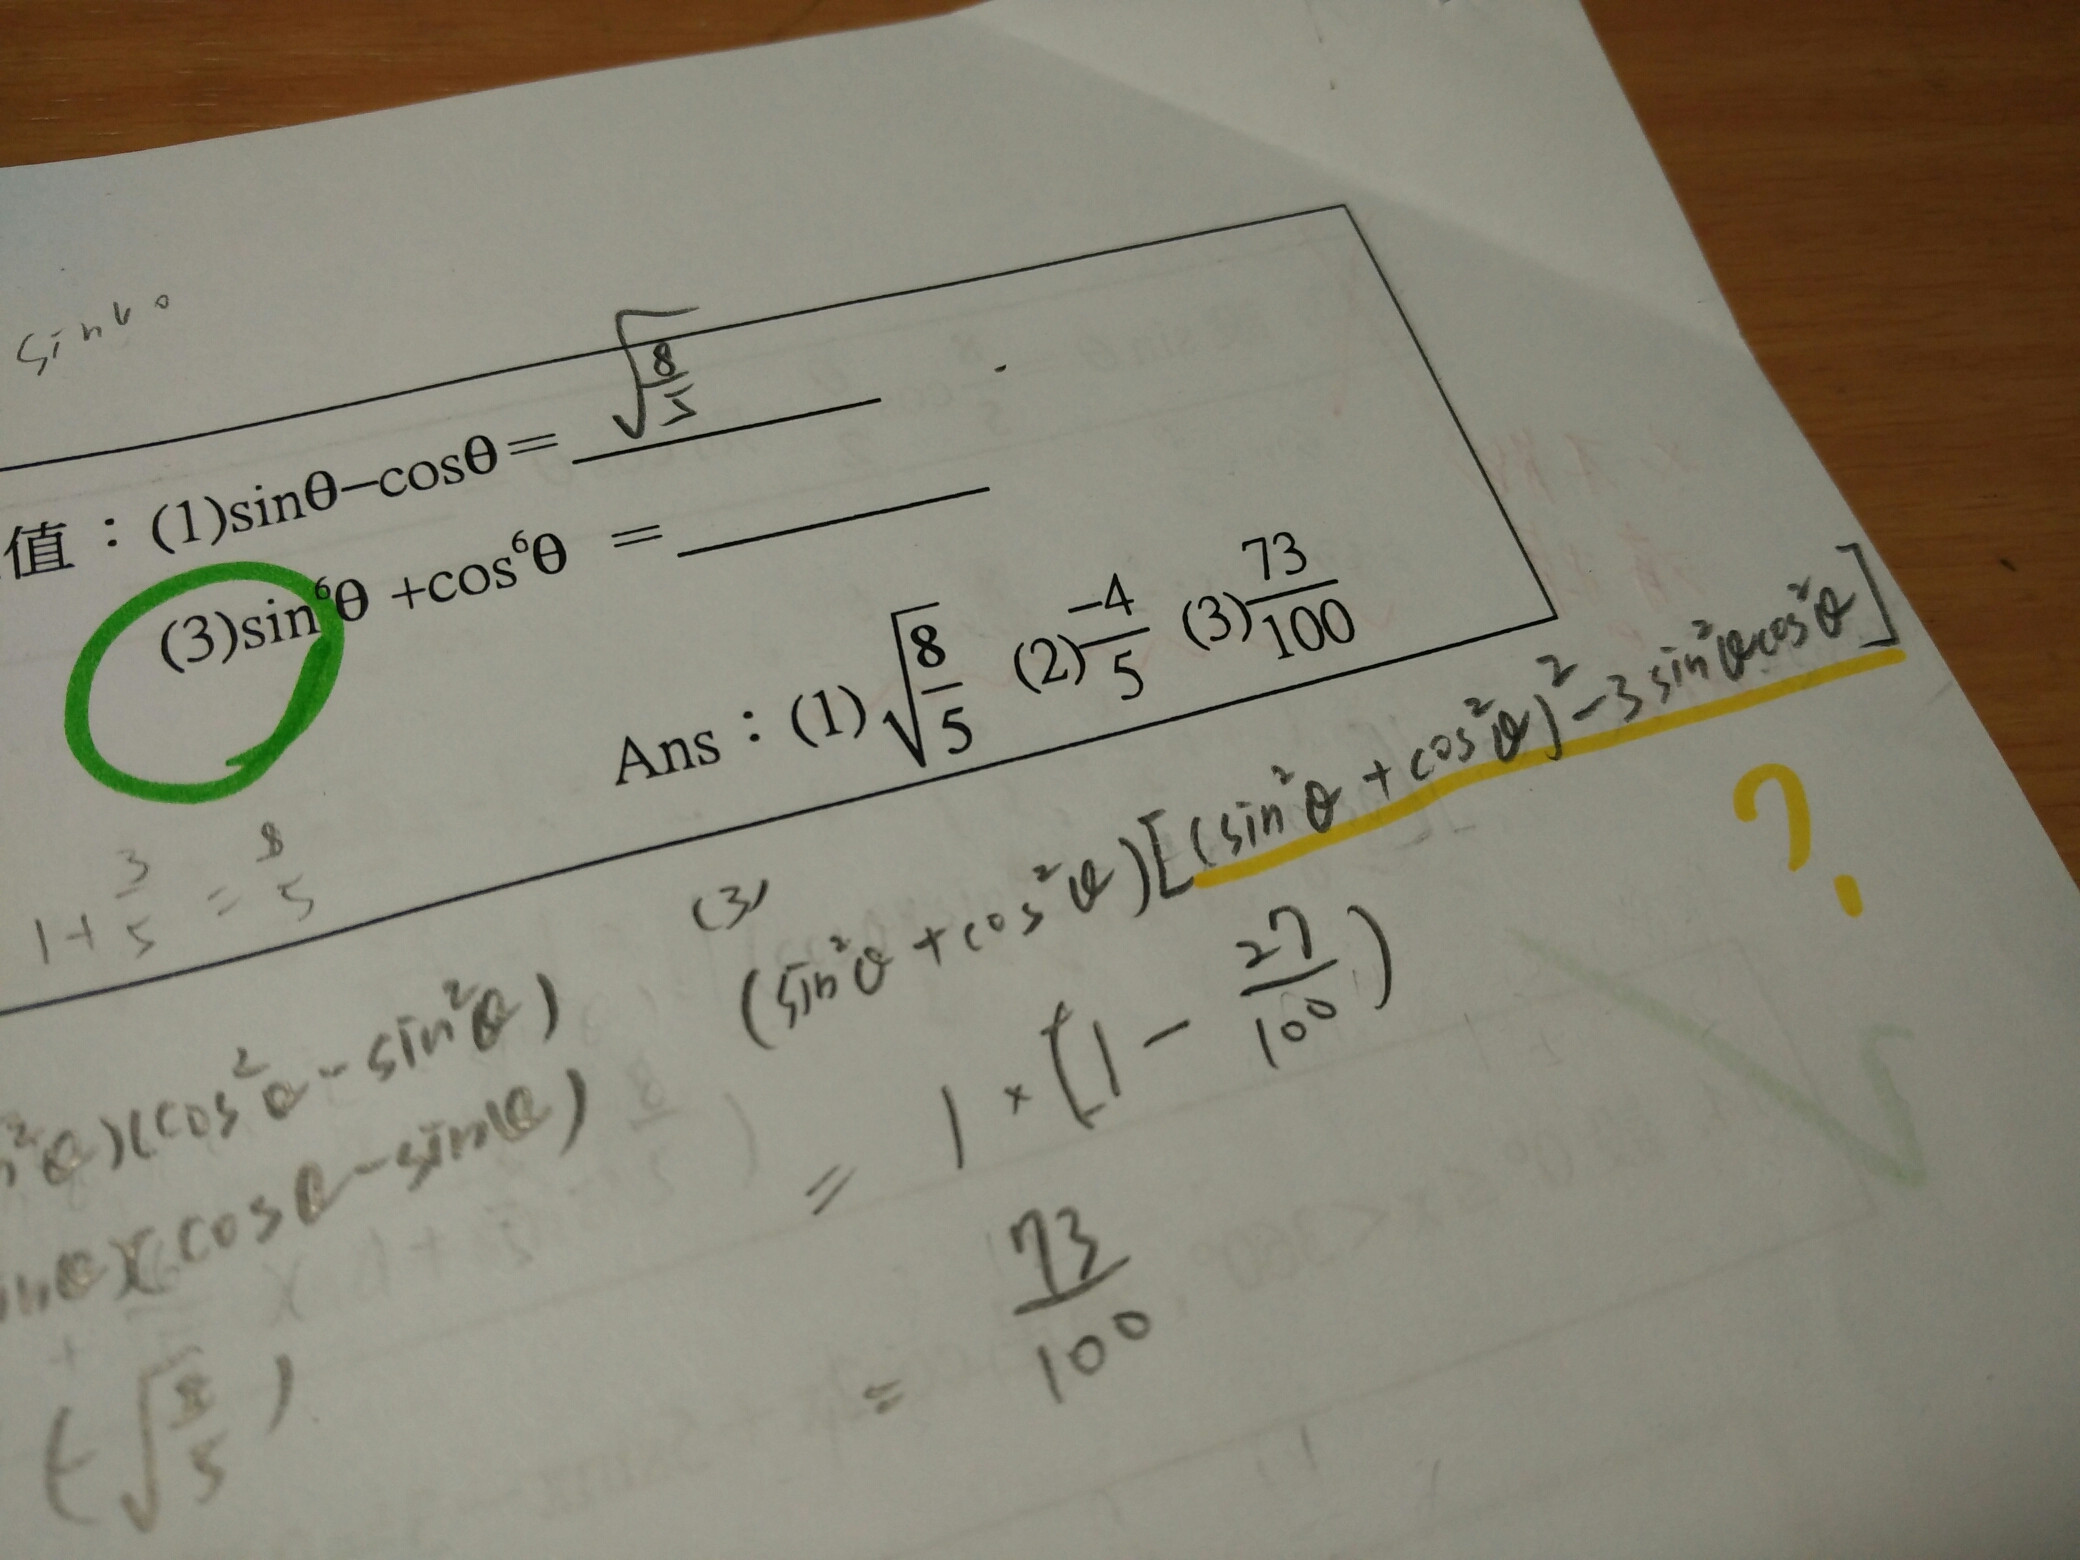 值：(1)sinθ−cosθ= √(8/5)
(3)sin⁶θ +cos⁶θ =
Ans：(1)√(8/5) (2)−4/5 (3)73/100
1+3/5=8/5
(3)
(sin²θ+cos²θ)[(sin²θ+cos²θ)²−3sin²θcos²θ]
?
=1×(1−27/100)
=73/100
²θ)(cos²θ−sin²θ)
θ)(cosθ−sinθ)
(−√(8/5))